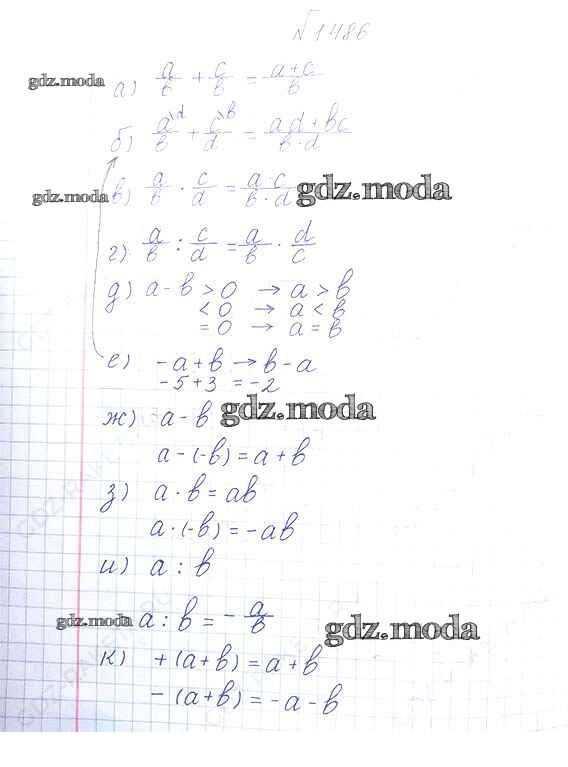 №1486
gdz.moda а) a/b + c/b = a+c/b
б) a\d/b + c\b/d = ad+bc/b·d
gdz.moda в) a/b · c/d = a·c/b·d gdz.moda
г) a/b : c/d = a/b · d/c
д) a-b > 0 → a > b
< 0 → a < b
= 0 → a = b
е) -a+b → b-a
-5+3 = -2
ж) a-b gdz.moda
a-(-b) = a+b
з) a·b = ab
a·(-b) = -ab
и) a : b
gdz.moda a : b = - a/b gdz.moda
к) +(a+b) = a+b
-(a+b) = -a-b